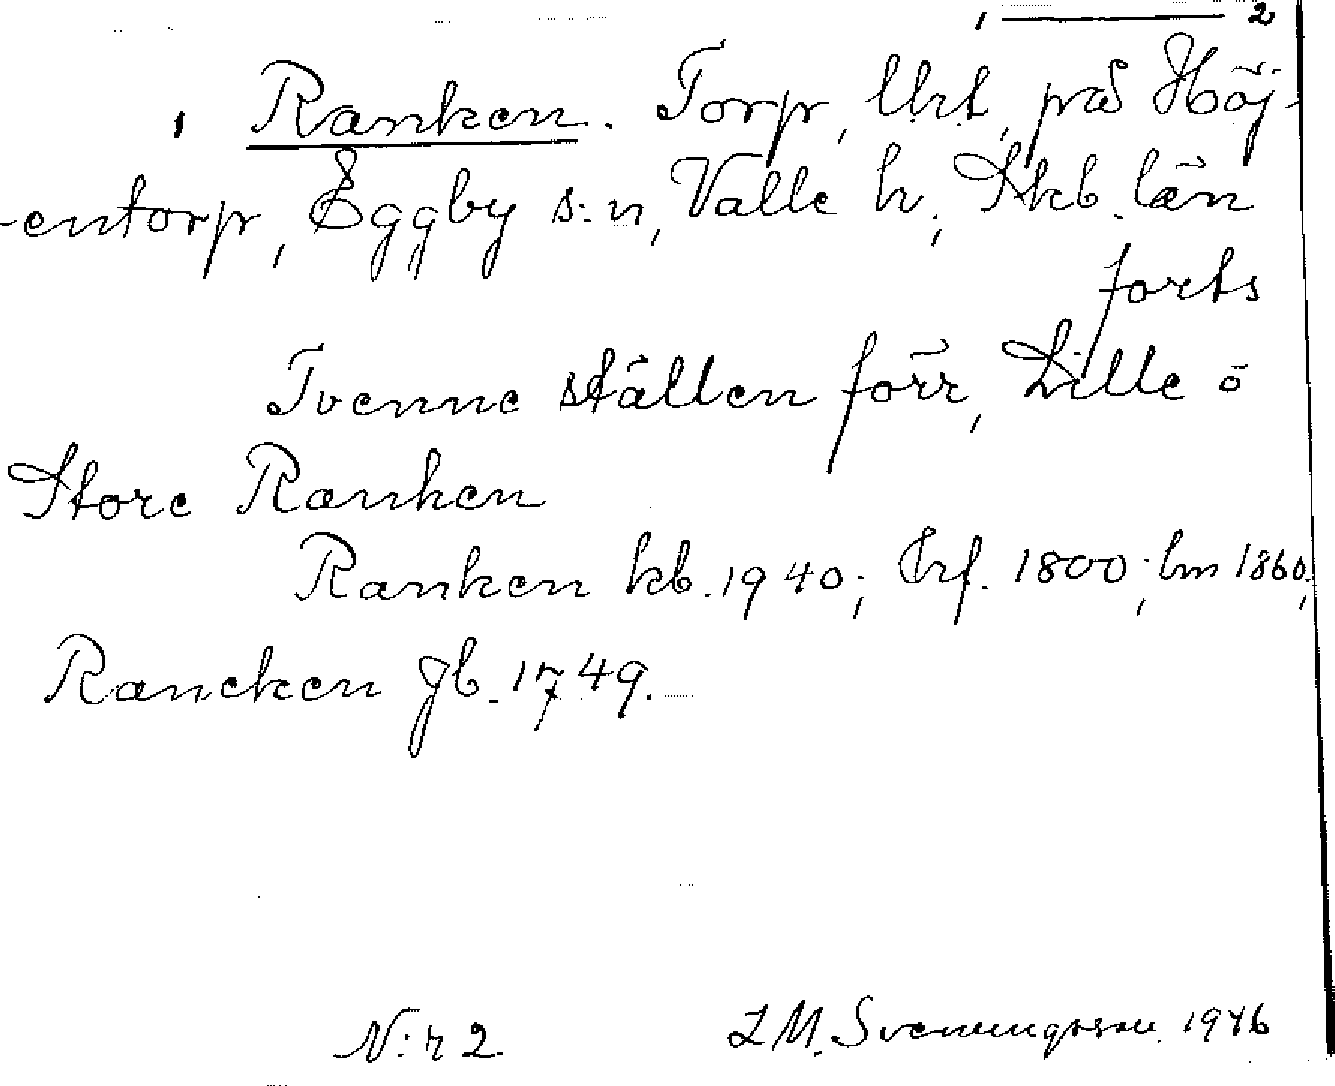 1 ——— 2
Ranken. Torp, lht, på Höj-
-entorp, Eggby s:n, Valle h, Skb. län
forts
Tvenne ställen förr, Lille o
Store Ranken
Ranken kb. 1940; Erf. 1800; lm 1860;
Rancken Jb. 1749.
N:r 2 S M. Svenungsson 1946